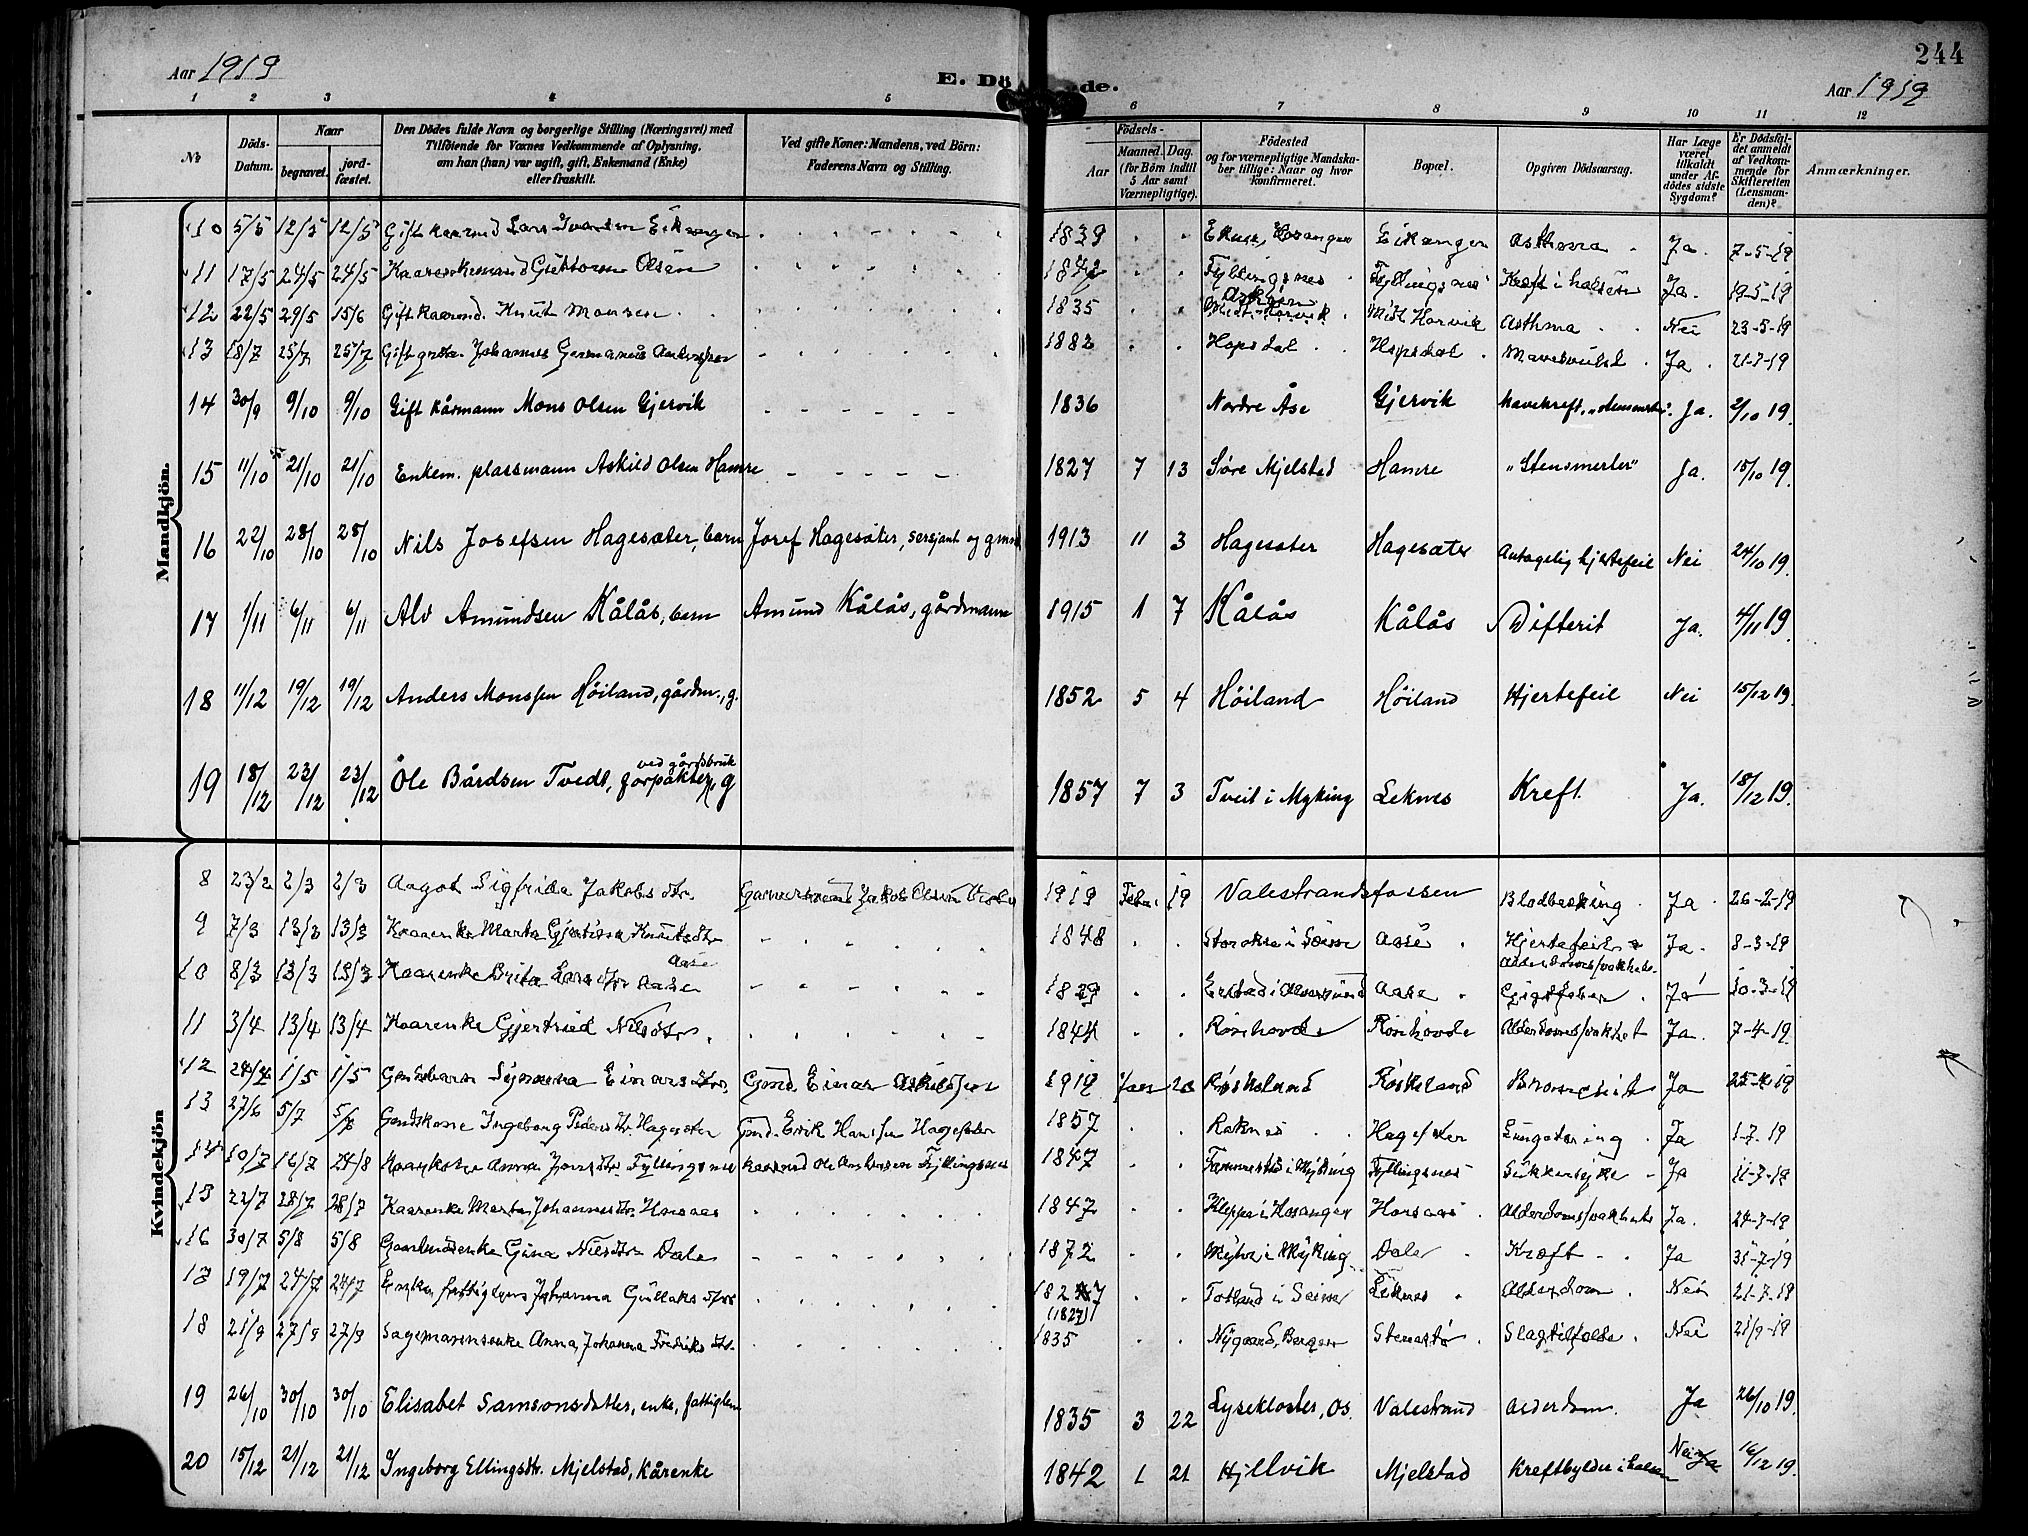 244
Aar 1919
E. Dö de.
Aar 1919
1 2 3 4 5 6 7 8 9 10 11 12
No
Döds-Datum.
Naar
begravet.
jord-fæstet.
Den Dödes fulde Navn og borgerlige Stilling (Næringsvei) med Tilföiende for Voxnes Vedkommende af Oplysning, om han (hun) var ugift, gift, Enkemand (Enke) eller fraskilt.
Ved gifte Koner: Mandens, ved Börn: Faderens Navn og Stilling.
Födsels-
Aar
Maaned. Dag.
(for Börn indtil 5 Aar samt Værnepligtige).
Födested
og for værnepligtige Mandska-ber tillige: Naar og hvor konfirmeret.
Bopæl.
Opgiven Dödsaarsag.
Har Læge været tilkaldt under Af-dödes sidste Sygdom?
Er Dödsfal-det anmeldt af Vedkom-mende for Skifteretten (Lensman-den)?
Anmærkninger.
Mandkjön.
10 5/5 12/5 12/5 Gift kaarmd Lars Ivarsen Eikanger 1839 Hosanger Eikanger Asthma Ja 7-5-19
11 17/5 24/5 24/5 Kaarenkemand Guttorm Olsen 1842 Fyllingsnes Fyllingsnes Kræft i halsen Ja 19-5-19
12 22/5 29/5 15/6 Gift kaarmd. Knut Monsen 1835 Midt Horvik Midt Horvik Asthma Nei 23-5-19
13 18/7 25/7 25/7 Gift Johannes Germanus 1882 Hopsdal Hopsdal Mavesvulst Ja 21-7-19
14 30/9 9/10 9/10 Gift kårmann Mons Olsen Gjervik 1836 Nordre Åse Gjervik Mavekreft, Ja. 2/10 19.
15 11/10 21/10 21/10 Enkem. plassmann Askild Olsen Hamre 1827 7 13 Søre Mjelstad Hamre "Stensmerter" Ja. 15/10 19.
16 22/10 28/10 28/10 Nils Josefsen Hagesæter, barn Josef Hagesæter, sersjant og gmd 1913 11 3 Hagesæter Hagesæter Antagelig hjertefeil Nei 24/10 19.
17 1/11 6/11 6/11 Alv Amundsen Kålås, barn Amund Kålås, gårdmann 1915 1 7 Kålås Kålås Difterit Ja. 4/11 19.
18 11/12 19/12 19/12 Anders Monssen Höiland, gårdm., g. 1852 5 4 Höiland Höiland Hjertefeil Nei 15/12 19.
19 18/12 23/12 23/12 Ole Bårdsen Tvedt, forpakter, ved gårdsbruk g 1857 7 3 Tveit i Myking Leknes Kreft Ja. 18/12 19.
Kvindekjön
8 23/2 2/3 2/3 Aagot Sigfrida Jakobsdtr. Jakob Olsen 1919 Febr. 19 Valestrandsfossen Ja 26-2-19
9 7/3 13/3 13/3 Kaarenke Marta Knutsdtr 1848 Aase Hjertefeil Ja. 8-3-19
10 8/3 13/3 13/3 Kaarenke Brita Larsdtr Aase 1829 Aase Alderdomssvakhet Ja 10-3-19
11 3/4 13/4 13/4 Kaarenke Gjertrud Nilsdtr. 1844 Rönhovde Rönhovde Alderdomssvakhet Ja. 7-4-19
12 24/4 1/5 1/5 Synnøva Einarsdtr. Gmd. Einar Askildsen 1919 20 Röskeland Röskeland Ja 25-4-19
13 27/6 5/7 5/7 Ingeborg Pedersdtr. Hagesæter Gmd. Erik Hansen Hagesæter 1857 Raknes Hagesæter Lungetæring Ja 1-7-19
14 10/7 16/7 24/8 Anna Jonsdtr Fyllingsnes Kaarmd Ole Fyllingsnes 1847 i Myking Fyllingsnes Sukkersyke Ja 11-7-19
15 22/7 28/7 28/7 Kaarenke Marta Johannesdtr. Horsaas 1847 Kleppe i Hosanger Horsaas Alderdomssvakhet Ja. 24-7-19
16 30/7 5/8 5/8 Gaardmdsenke Gina Nilsdtr Dale 1872 i Myking Dale Kræft Ja 31-7-19
17 19/7 24/7 24/7 Enke, fattiglem Johanna Gullaksdtr 1827 (1827) Totland i Seim Leknes Alderdom Nei 21-7-19
18 21/9 27/9 27/9 Anna Johanna Fredriksdtr. 1835 Nygaard, Bergen Stemstö Slagtilfælde. Nei 21/9-19
19 26/10 30/10 30/10 Elisabet Samsonsdatter, enke, fattiglem 1835 3 22 Lysekloster, Os. Valestrand Alderdom. Ja 26/10 19.
20 15/12 21/12 21/12 Ingeborg Ellingsdtr. Mjelstad, Kårenke 1842 1 21 Hjellvik Mjelstad Kreftbylder i halsen Nei 16/12 19.